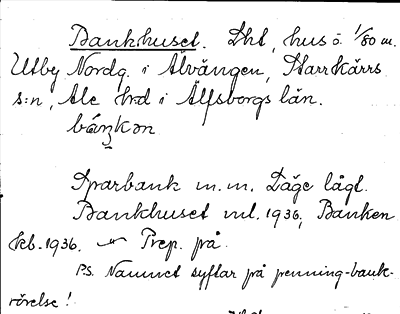 Bankhuset. Dht, hus å 1/80 m.
Utby Nordg. i Alvängen, Starrkärrs
s:n, Ale hrd i Älfsborgs län.
báŋkən
Sparbank m.m. Läge lågt.
Bankhuset ml. 1936, Banken
kb. 1936. Prep. på.
PS. Namnet syftar på penning-bank-
rörelse!